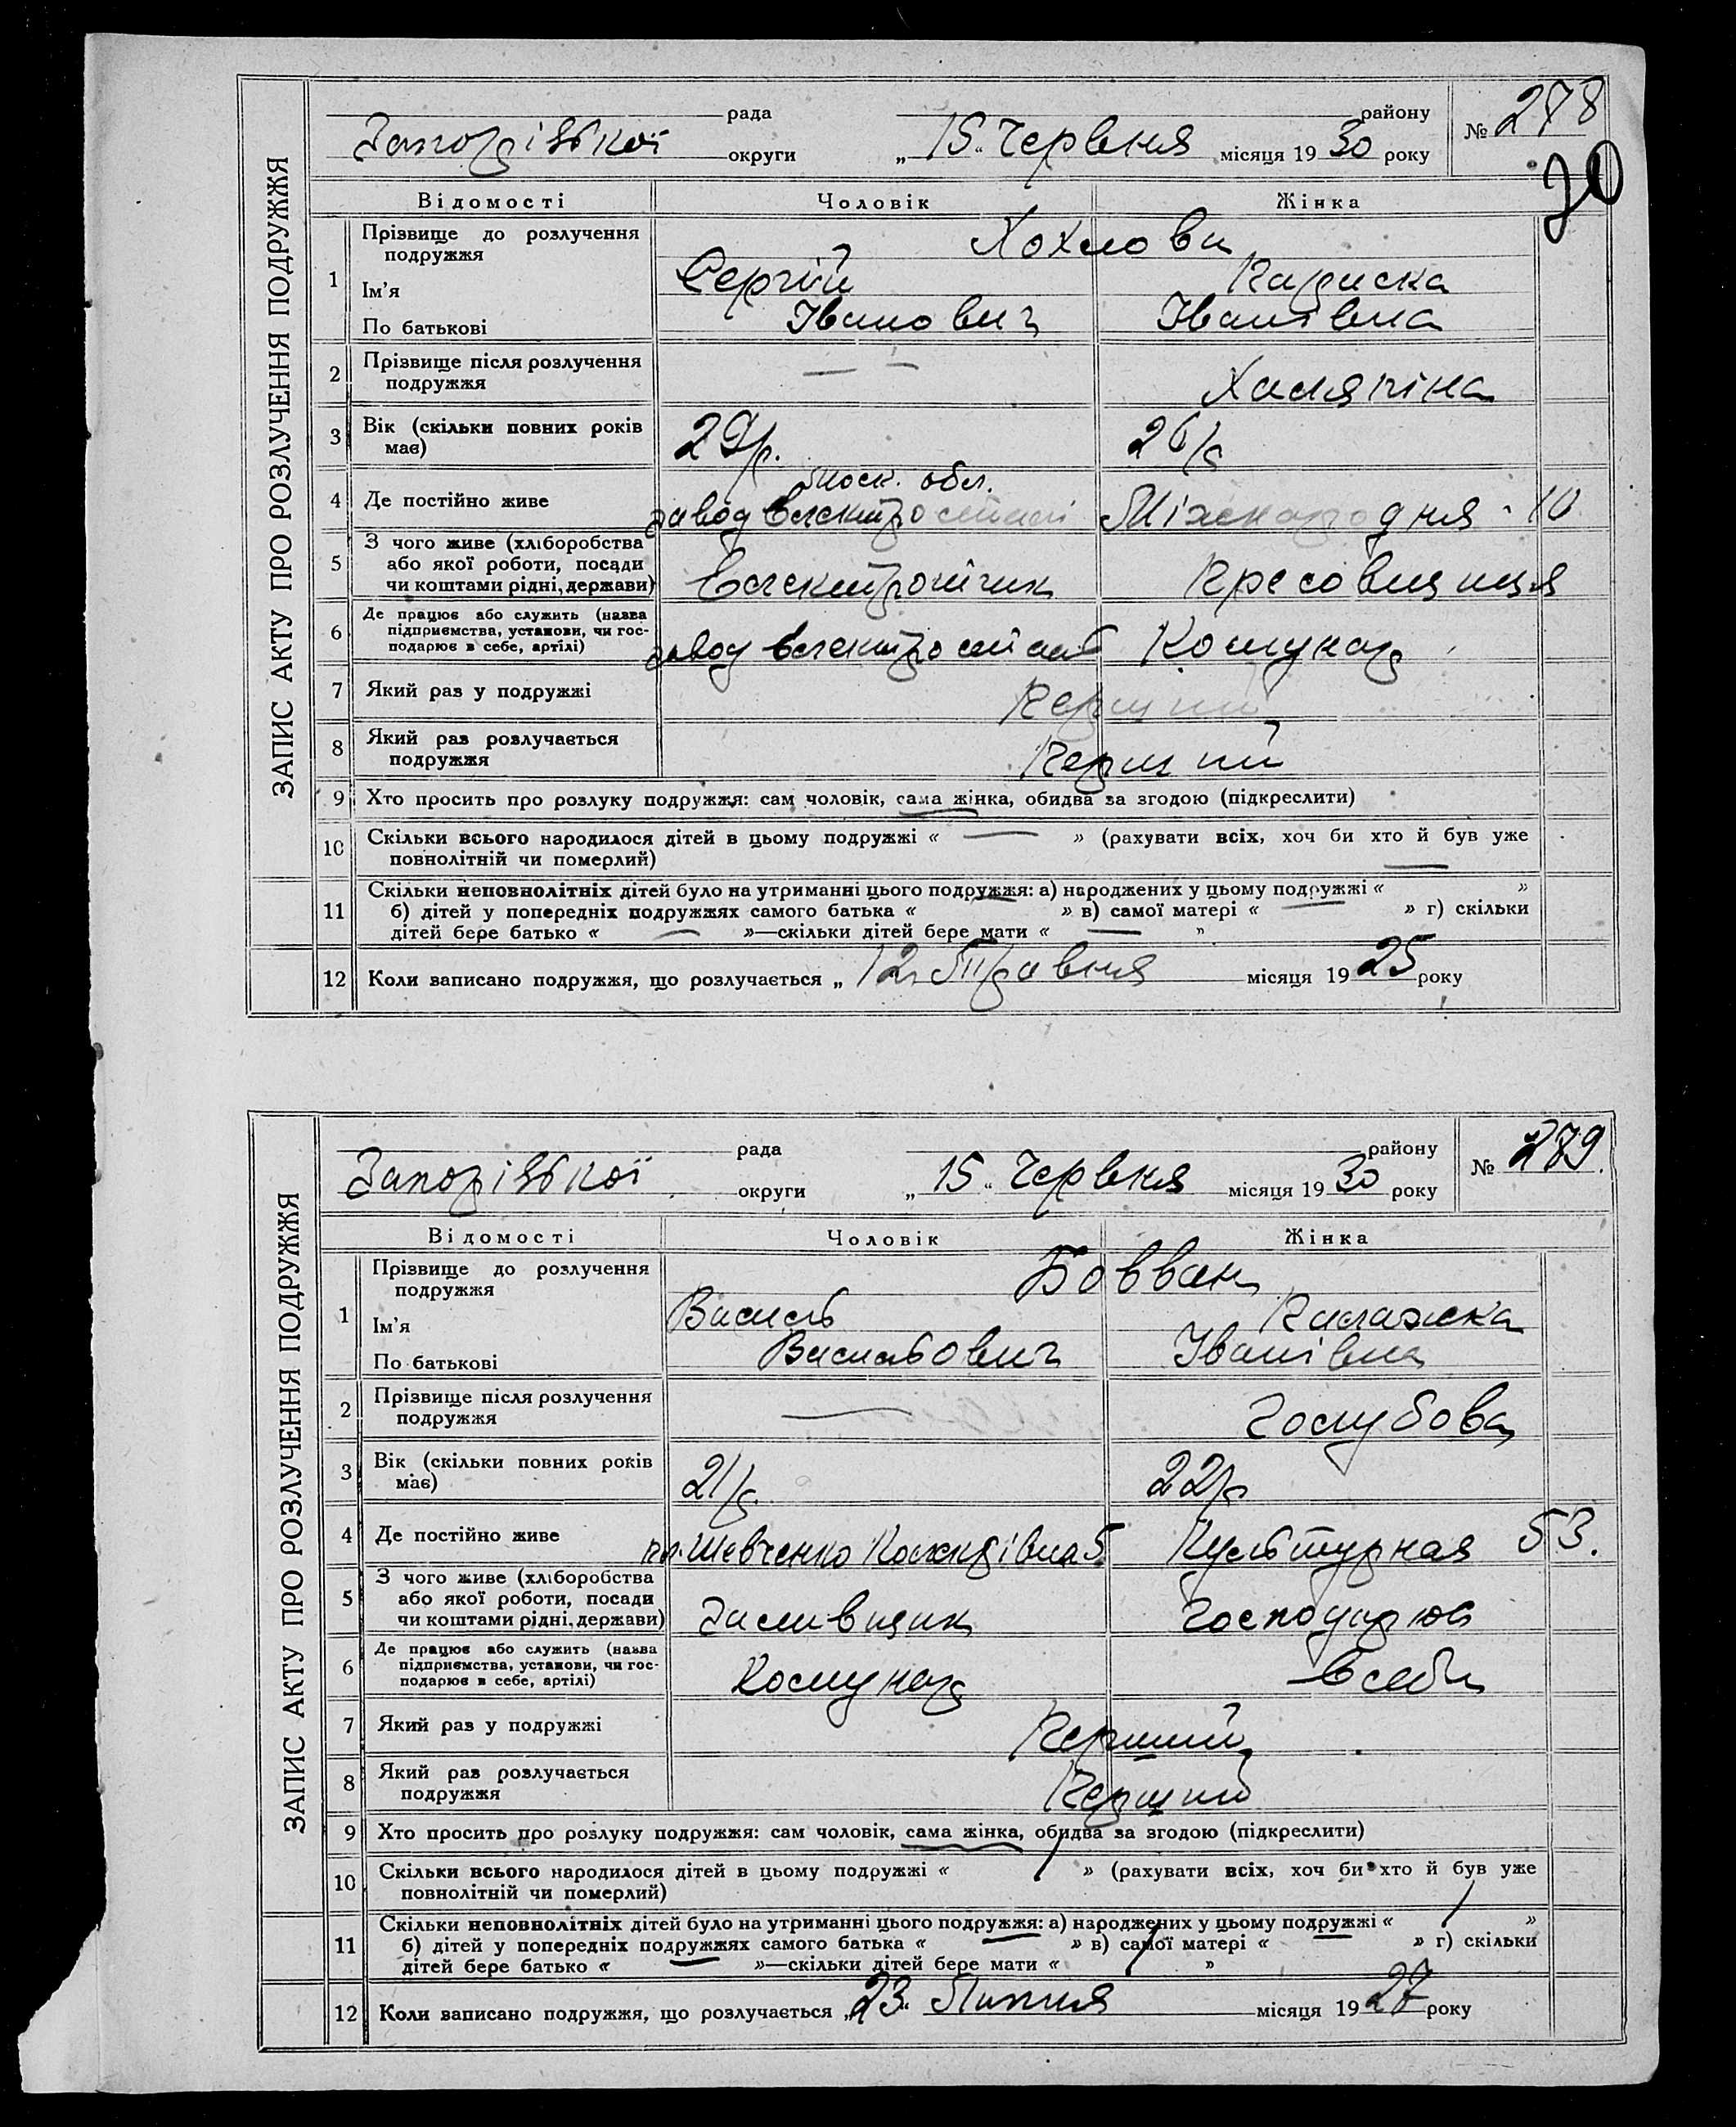 ЗАПИС АКТУ ПРО РОЗЛУЧЕННЯ ПОДРУЖЖЯ
рада району № 278
Запорізької округи „15" Червня місяця 1930 року
20
Відомості Чоловік Жінка
1 Прізвище до розлучення подружжя Хохлови
Ім'я Сергій
По батькові Іванович Іванівна
2 Прізвище після розлучення — —
подружжя
3 Вік (скільки повних років 29 р. 26 р
має)
Моск. обл.
4 Де постійно живе завод Електросталі Міжнародня - 10
5 З чого живе (хліборобства
або якої роботи, посади
чи коштами рідні, держави) Електротічик Пресовщиця
6 Де працює або служить (назва
підприємства, установи, чи гос-
подарює в себе, артілі) завод Електросталь Комунар
7 Який раз у подружжі Перший
8 Який раз розлучається
подружжя Перший
9 Хто просить про розлуку подружжя: сам чоловік, сама жінка, обидва за згодою (підкреслити)
10 Скільки всього народилося дітей в цьому подружжі « — » (рахувати всіх, хоч би хто й був уже
повнолітній чи померлий)
11 Скільки неповнолітніх дітей було на утриманні цього подружжя: а) народжених у цьому подружжі « — »
б) дітей у попередніх подружжях самого батька « — » в) самої матері « — » г) скільки
дітей бере батько « — »—скільки дітей бере мати « — »
12 Коли записано подружжя, що розлучається „12" Травня місяця 1925 року
ЗАПИС АКТУ ПРО РОЗЛУЧЕННЯ ПОДРУЖЖЯ
рада району № 279.
Запорізької округи „15" Червня місяця 1930 року
Відомості Чоловік Жінка
1 Прізвище до розлучення подружжя Бовван
Ім'я Василь Палажка
По батькові Васильович Іванівна
2 Прізвище після розлучення
подружжя — Голубова
3 Вік (скільки повних років 21 р. 22 р
має)
4 Де постійно живе пл. Шевченко 5 Культурная 53.
5 З чого живе (хліборобства
або якої роботи, посади
чи коштами рідні, держави) Заливщик Господарює
6 Де працює або служить (назва
підприємства, установи, чи гос-
подарює в себе, артілі) Комунар в себи
7 Який раз у подружжі Перший
8 Який раз розлучається
подружжя Перший
9 Хто просить про розлуку подружжя: сам чоловік, сама жінка, обидва за згодою (підкреслити)
10 Скільки всього народилося дітей в цьому подружжі « 1 » (рахувати всіх, хоч би хто й був уже
повнолітній чи померлий)
11 Скільки неповнолітніх дітей було на утриманні цього подружжя: а) народжених у цьому подружжі « 1 »
б) дітей у попередніх подружжях самого батька « — » в) самої матері « — » г) скільки
дітей бере батько « — »—скільки дітей бере мати « 1 »
12 Коли записано подружжя, що розлучається „23" Липня місяця 1927 року